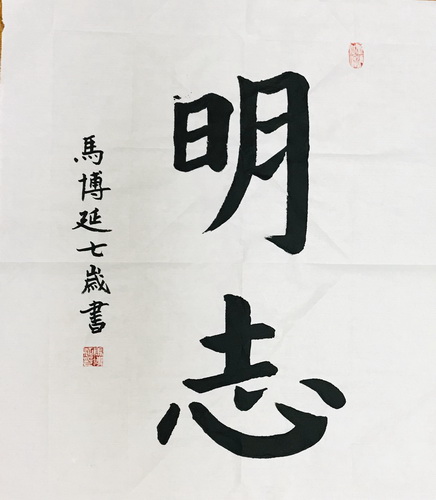 明志
馬博延七歲書